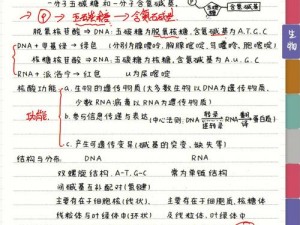 一分子五碳糖和一分子含氮碱基.
→ ① → 五碳糖 → 含氮碱基
脱氧核苷酸 ⇒ DNA: 五碳糖为脱氧核糖, 含氮碱基为A.T.G.C
DNA+甲基绿→绿色 (分别为腺嘌呤, 胸腺嘧啶, 鸟嘌呤, 胞嘧啶)
核糖核苷酸 ⇒ RNA: 五碳糖为核糖, 含氮碱基为A.U.G.C
RNA+派洛宁→红色 U为尿嘧啶
核酸功能: a.生物的遗传物质 (大多数生物以DNA为遗传物质,
少数病毒以RNA为遗传物质)
功能
b.参与信息传递与表达 (中心法则: DNA 转录 逆转录 RNA 翻译 蛋白质)
c.产生可遗传变异 (碱基的突变, 缺失等)
结构与分布: DNA RNA
双螺旋结构, A-T, G-C 常为单链结构
间碱基互补配对(氢键)
主要存在于细胞核(线状), 主要存在于细胞质, 核糖体
线粒体与叶绿体中(环状) 及线粒体, 叶绿体中.
生物